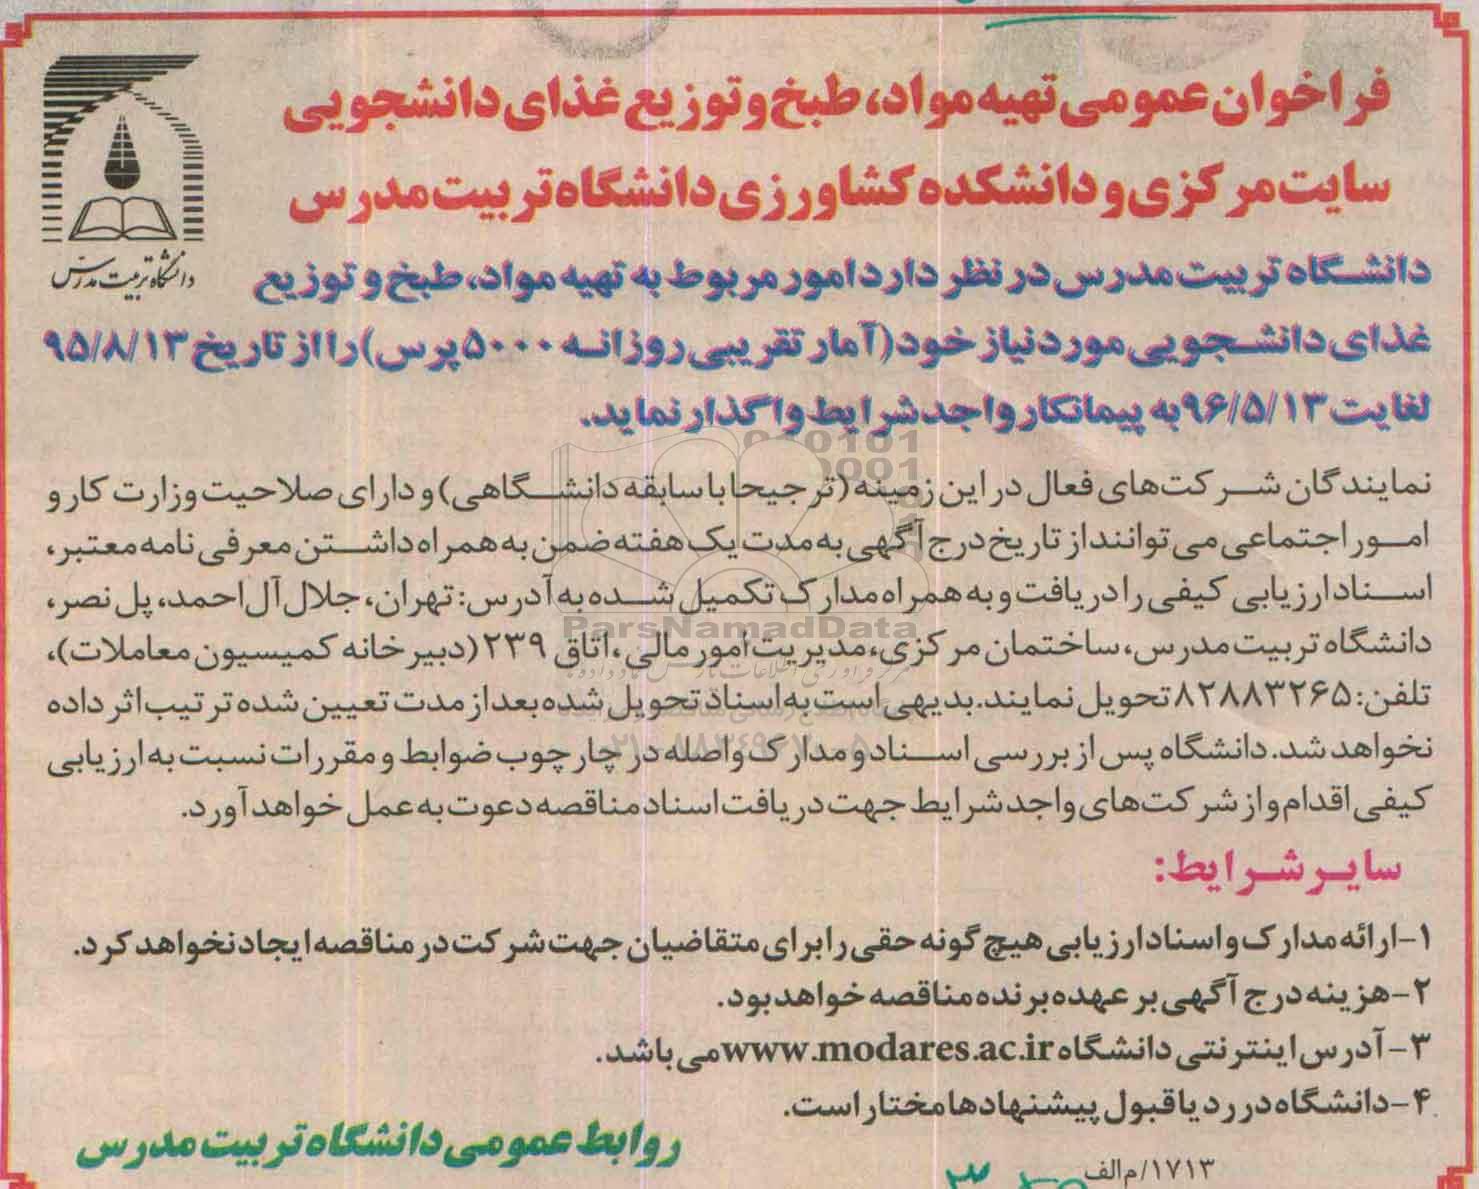 فراخوان عمومی تهیه مواد، طبخ و توزیع غذای دانشجویی
سایت مرکزی و دانشکده کشاورزی دانشگاه تربیت مدرس
دانشگاه تربیت مدرس
دانشگاه تربیت مدرس در نظر دارد امور مربوط به تهیه مواد، طبخ و توزیع
غذای دانشجویی مورد نیاز خود (آمار تقریبی روزانه ۵۰۰۰ پرس) را از تاریخ ۹۵/۸/۱۳
لغایت ۹۶/۵/۱۳ به پیمانکار واجد شرایط واگذار نماید.
نمایندگان شرکت‌های فعال در این زمینه (ترجیحا با سابقه دانشگاهی) و دارای صلاحیت وزارت کار و
امور اجتماعی می توانند از تاریخ درج آگهی به مدت یک هفته ضمن به همراه داشتن معرفی نامه معتبر،
اسناد ارزیابی کیفی را دریافت و به همراه مدارک تکمیل شده به آدرس: تهران، جلال آل احمد، پل نصر،
دانشگاه تربیت مدرس، ساختمان مرکزی، مدیریت امور مالی، اتاق ۲۳۹ (دبیرخانه کمیسیون معاملات)،
تلفن: ۸۲۸۸۳۲۶۵ تحویل نمایند. بدیهی است به اسناد تحویل شده بعد از مدت تعیین شده ترتیب اثر داده
نخواهد شد. دانشگاه پس از بررسی اسناد و مدارک واصله در چارچوب ضوابط و مقررات نسبت به ارزیابی
کیفی اقدام و از شرکت‌های واجد شرایط جهت دریافت اسناد مناقصه دعوت به عمل خواهد آورد.
سایر شرایط:
۱- ارائه مدارک و اسناد ارزیابی هیچ گونه حقی را برای متقاضیان جهت شرکت در مناقصه ایجاد نخواهد کرد.
۲- هزینه درج آگهی بر عهده برنده مناقصه خواهد بود.
۳- آدرس اینترنتی دانشگاه www.modares.ac.ir می باشد.
۴- دانشگاه در رد یا قبول پیشنهادها مختار است.
روابط عمومی دانشگاه تربیت مدرس
۱۷۱۳/م الف
ParsNamadData